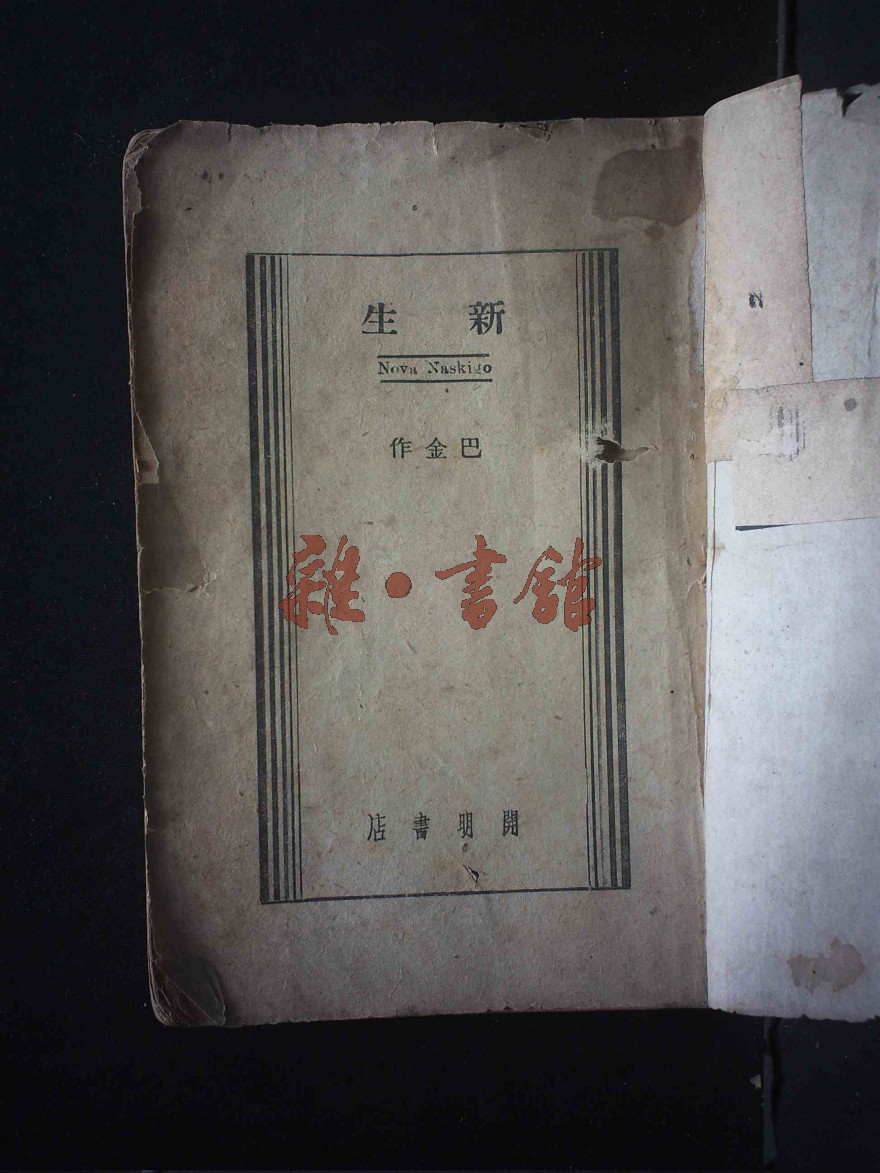 新生
Nova Naskigo
巴金作
雜·書館
開明書店